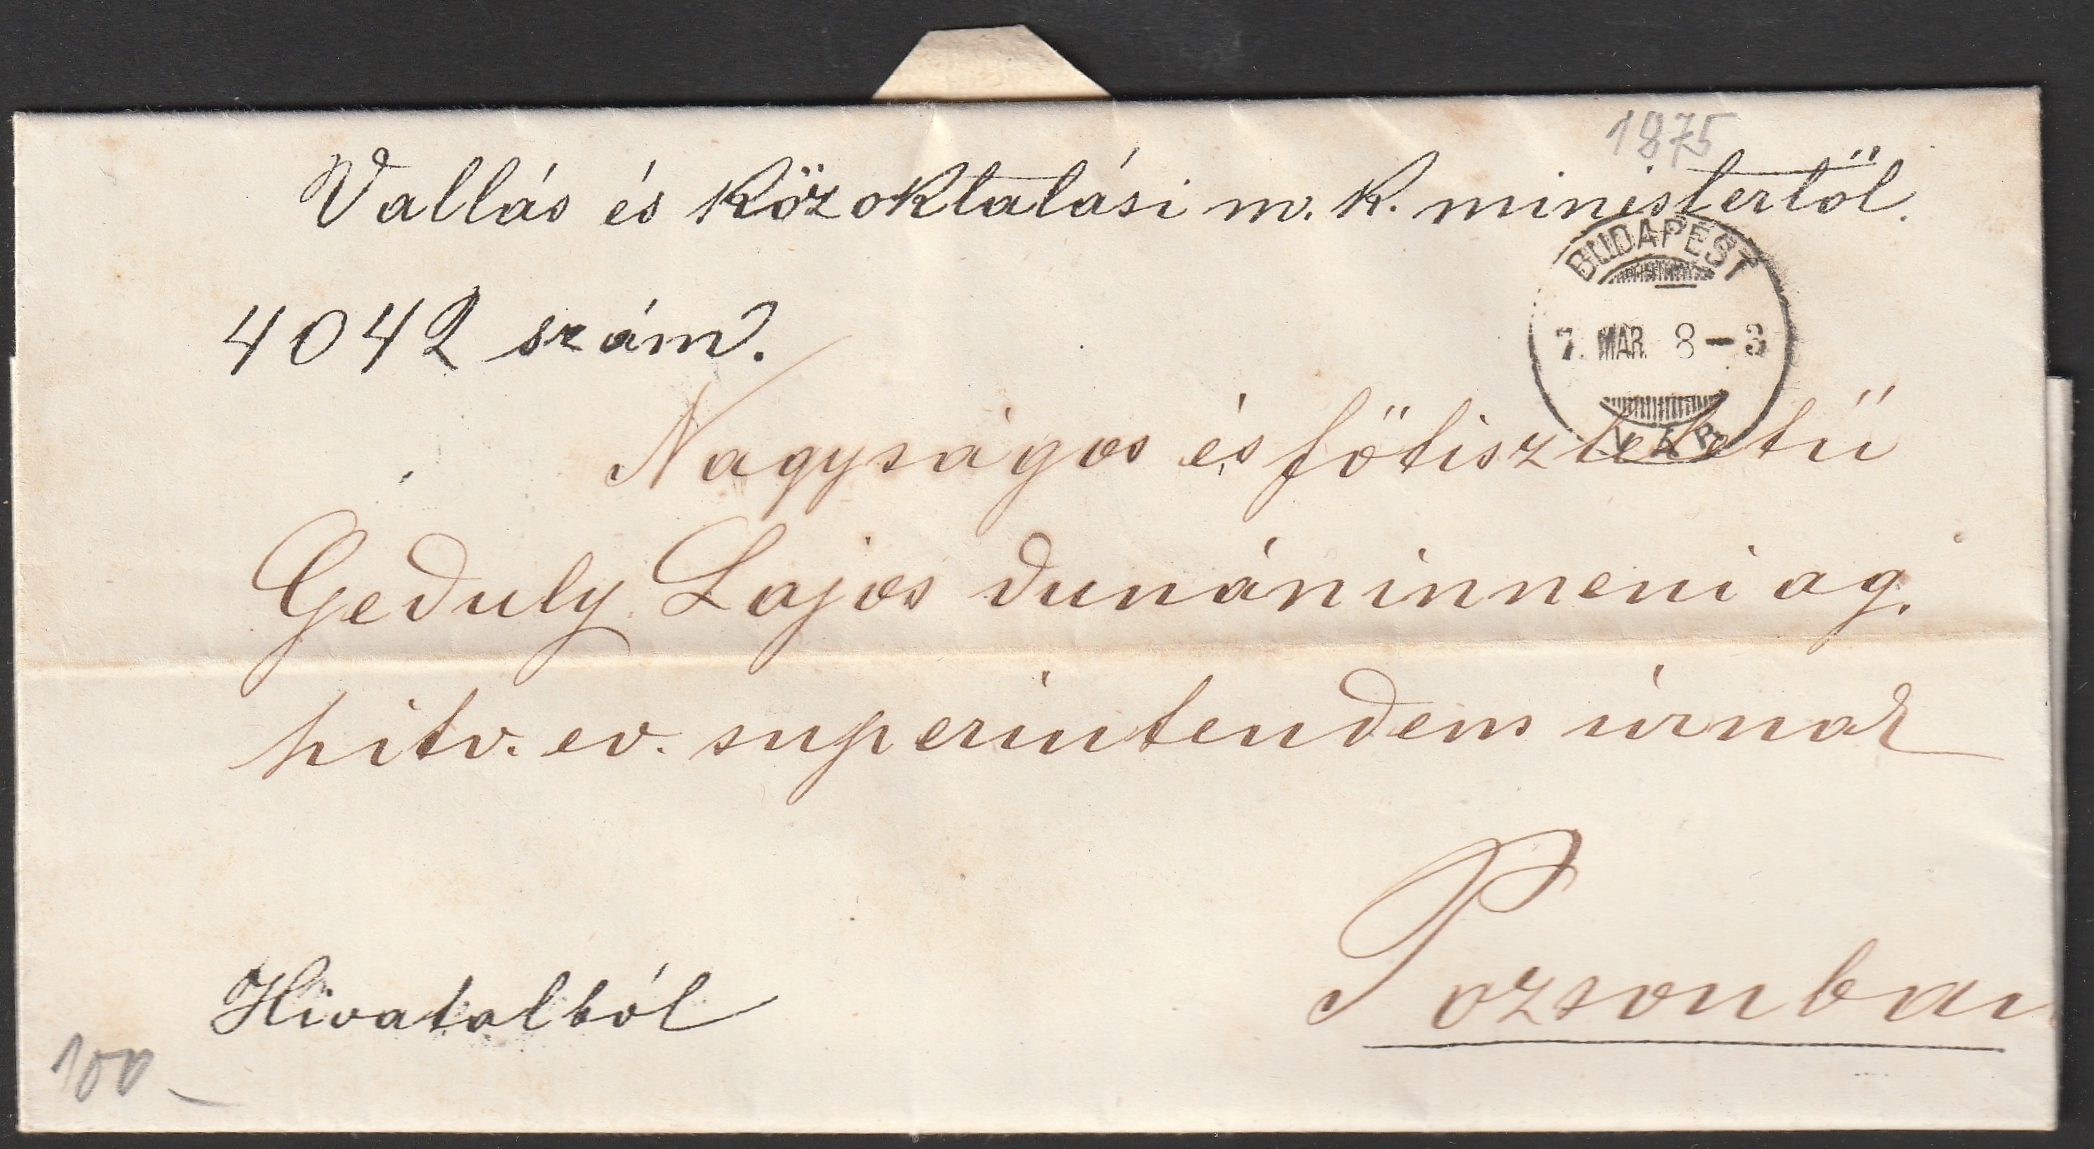 1875
Vallás és közoktatási m. k. ministertől.
BUDAPEST
4042 szám.
7. MAR. 8-3
VÁR
Nagyságos és főtiszteletű
Geduly Lajos dunáninneni ag.
hitv. ev. superintendens úrnak
Pozsonban
Hivatalból
100